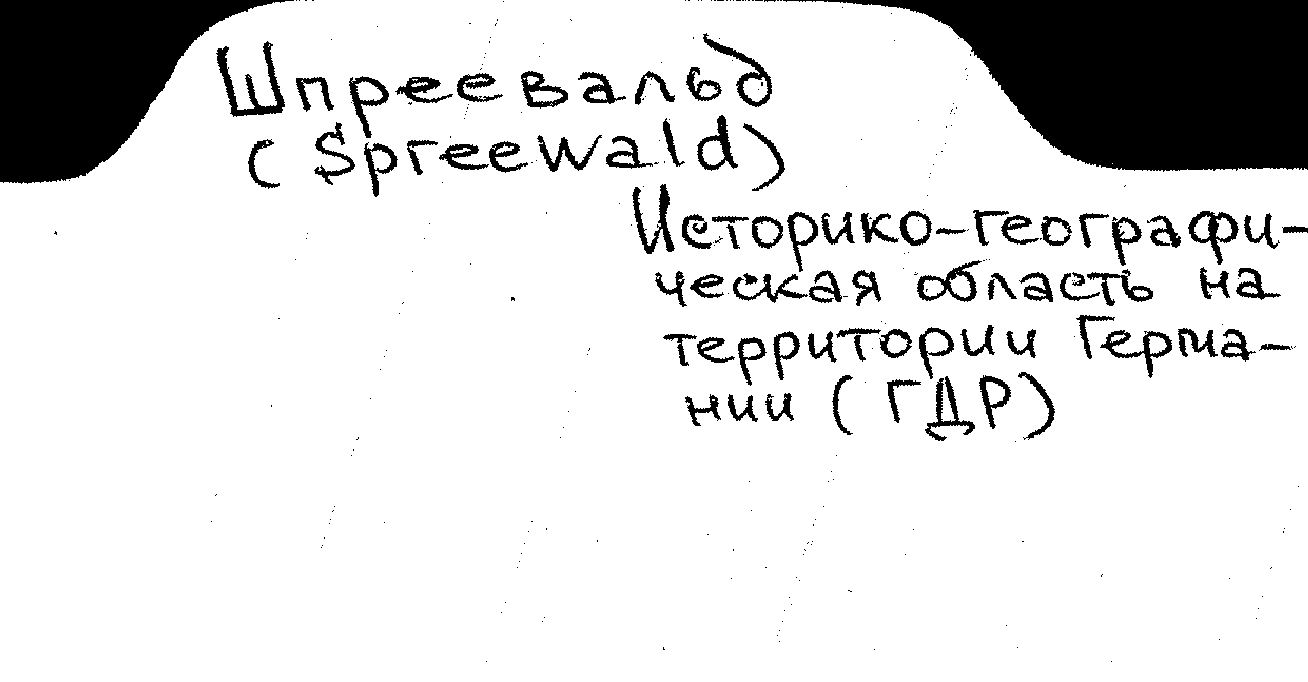 Шпреевальд
(Spreewald)
Историко-географи-
ческая область на
территории Герма-
нии (ГДР)